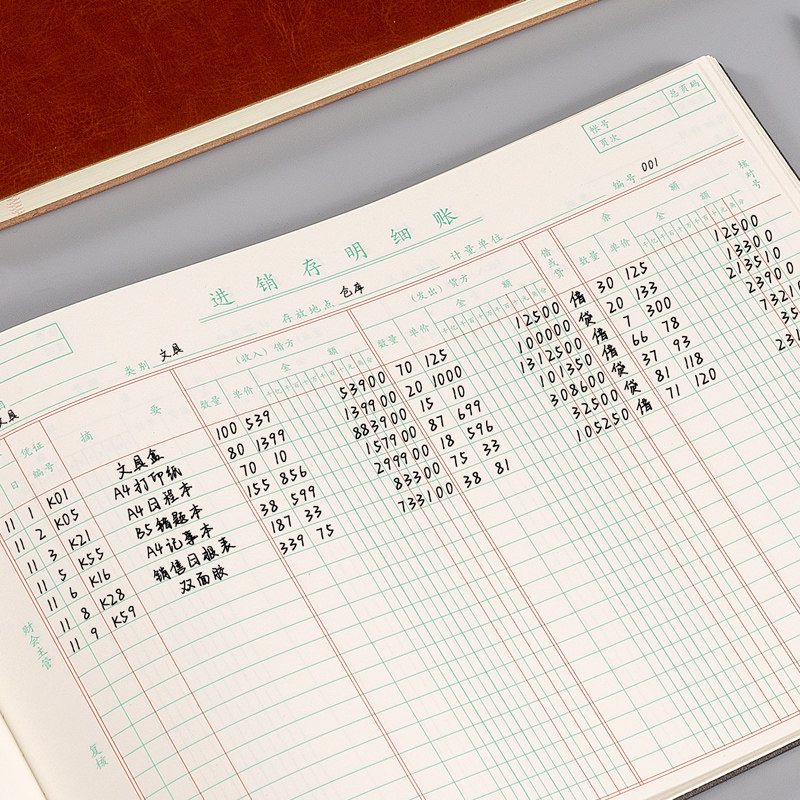 帐号 总页码
页次
编号 001
进销存明细账
类别 文具 存放地点 仓库 计量单位
文具
凭证 摘要 (收入) 借方 (发出) 贷方 借或贷 余额 核对号
日 编号 数量 单价 金额 数量 单价 金额 数量 单价 金额
千 亿 千 百 十 万 千 百 十 元 角 分
11 1 K01 文具盒 100 539 53900 70 125 12500 借 30 125 12500
11 2 K05 A4打印纸 80 1399 139900 20 1000 100000 贷 20 133 13300
11 3 K21 A4日程本 70 10 883900 15 10 1312500 借 7 300 213510
11 5 K55 B5错题本 155 856 157900 87 699 101350 借 66 78 23900
11 6 K16 A4记事本 38 599 299900 18 596 308600 贷 37 93 73210
11 8 K28 销售日报表 187 33 83300 75 33 32500 贷 81 118
11 9 K59 双面胶 339 75 733100 38 81 105250 借 71 120
财会主管
复核